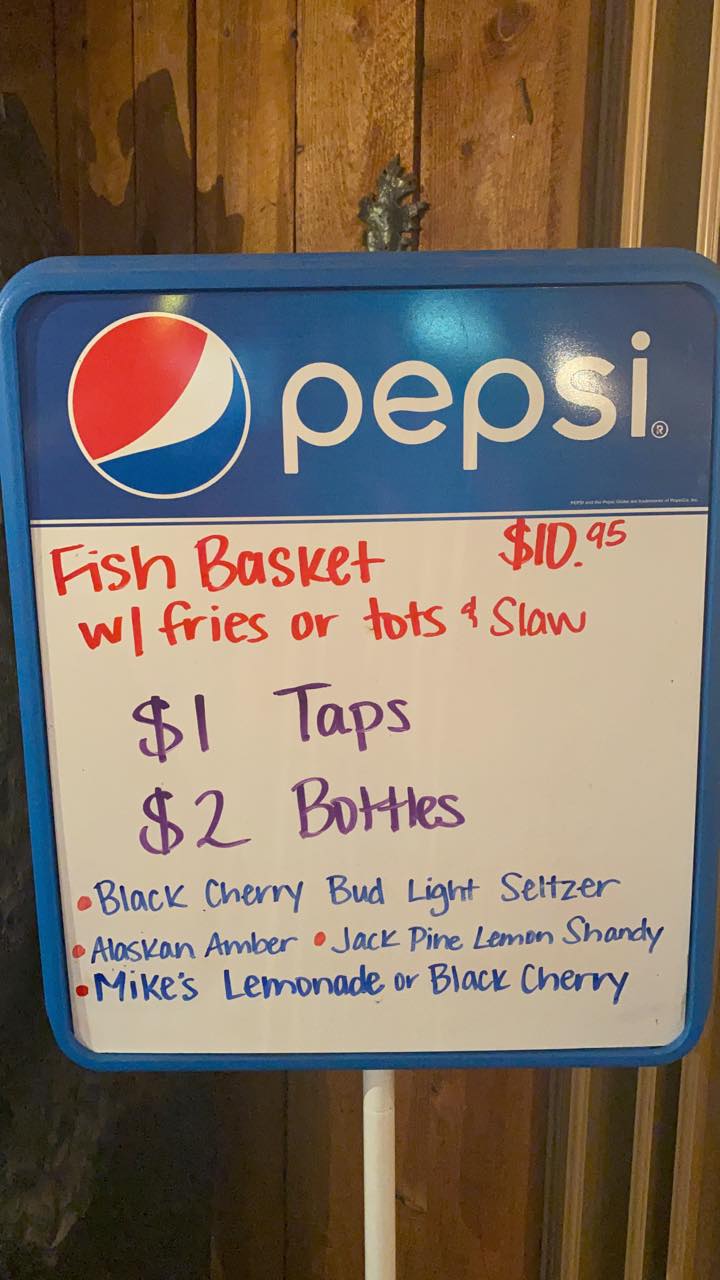 pepsi®
PEPSI and the Pepsi Globe are trademarks of PepsiCo, Inc.
Fish Basket $10.95
w/ fries or tots & Slaw
$1 Taps
$2 Bottles
• Black Cherry Bud Light Seltzer
• Alaskan Amber • Jack Pine Lemon Shandy
• Mike's Lemonade or Black Cherry